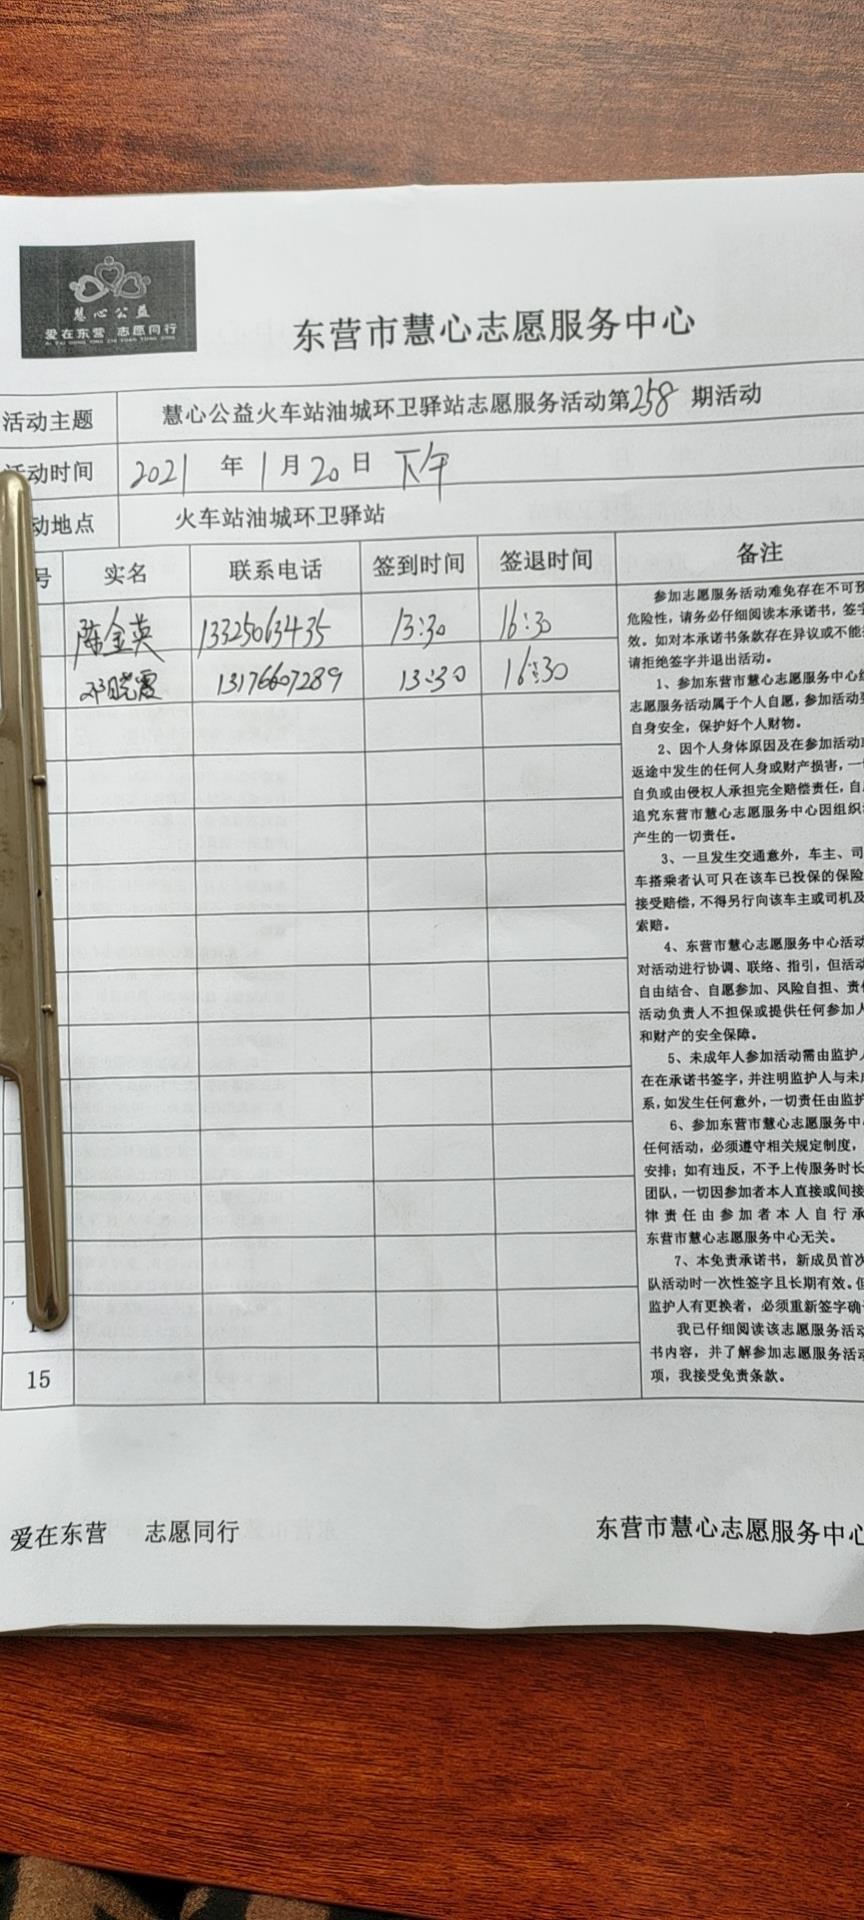 慧心公益
爱在东营 志愿同行
AI ZAI DONG YING ZHI YUAN TONG XING
东营市慧心志愿服务中心
活动主题 慧心公益火车站油城环卫驿站志愿服务活动第258期活动
活动时间 2021 年 1 月 20 日 下午
动地点 火车站油城环卫驿站
号 实名 联系电话 签到时间 签退时间 备注
陈金英 13325063435 13:30 16:30
邓晓霞 13176607289 13:30 16:30
参加志愿服务活动难免存在不可预
危险性，请务必仔细阅读本承诺书，签字
效。如对本承诺书条款存在异议或不能
请拒绝签字并退出活动。
1、参加东营市慧心志愿服务中心
志愿服务活动属于个人自愿，参加活动
自身安全，保护好个人财物。
2、因个人身体原因及在参加活动
返途中发生的任何人身或财产损害，一
自负或由侵权人承担完全赔偿责任，自
追究东营市慧心志愿服务中心因组织
产生的一切责任。
3、一旦发生交通意外，车主、司
车搭乘者认可只在该车已投保的保险
接受赔偿，不得另行向该车主或司机及
索赔。
4、东营市慧心志愿服务中心活动
对活动进行协调、联络、指引，但活动
自由结合、自愿参加、风险自担、责
活动负责人不担保或提供任何参加人
和财产的安全保障。
5、未成年人参加活动需由监护人
在在承诺书签字，并注明监护人与未
系，如发生任何意外，一切责任由监护
6、参加东营市慧心志愿服务中
任何活动，必须遵守相关规定制度，
安排；如有违反，不予上传服务时长
团队，一切因参加者本人直接或间接
律责任由参加者本人自行承
东营市慧心志愿服务中心无关。
7、本免责承诺书，新成员首次
队活动时一次性签字且长期有效。但
监护人有更换者，必须重新签字确
我已仔细阅读该志愿服务活动
书内容，并了解参加志愿服务活动
项，我接受免责条款。
15
爱在东营 志愿同行 东营市慧心志愿服务中心